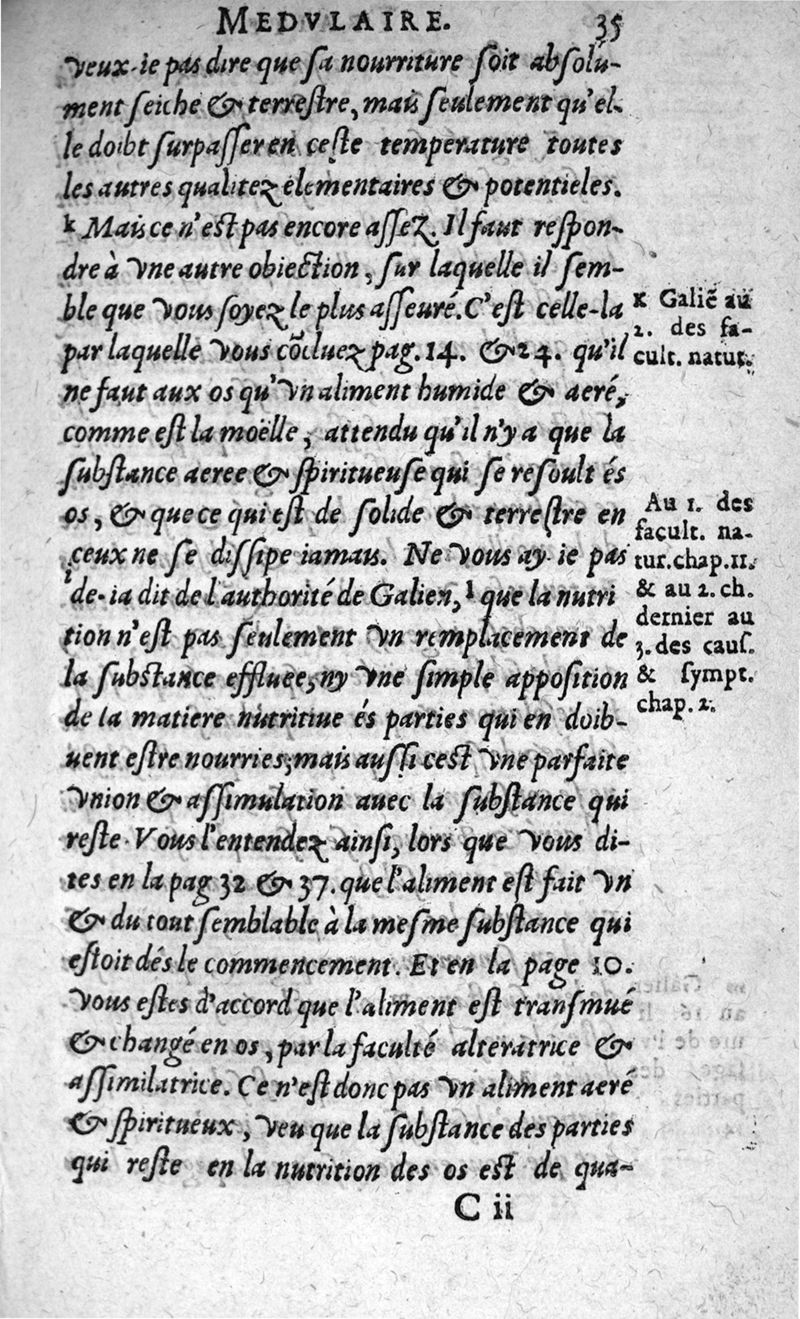 MEDVLAIRE. 35
veux-ie pas dire que sa nourriture soit absolu-
ment seiche & terrestre, mais seulement qu'el-
le doibt surpasser en ceste temperature toutes
les autres qualitez elementaires & potentieles.
k Mais ce n'est pas encore assez. Il faut respon-
dre à vne autre obiection, sur laquelle il sem-
ble que vous soyez le plus asseuré. C'est celle-la
par laquelle vous cõcluez pag. 14. & 24. qu'il
ne faut aux os qu'vn aliment humide & aeré,
comme est la moëlle, attendu qu'il n'y a que la
substance aeree & spiritueuse qui se resoult és
os, & que ce qui est de solide & terrestre en
iceux ne se dissipe iamais. Ne vous ay-ie pas
de-ia dit de l'authorité de Galien, l que la nutri
tion n'est pas seulement vn remplacement de
la substance effluee, ny vne simple apposition
de la matiere nutritiue és parties qui en doib-
uent estre nourries; mais aussi cest vne parfaite
vnion & assimulation auec la substance qui
reste. Vous l'entendez ainsi, lors que vous di-
tes en la pag 32 & 37. que l'aliment est fait vn
& du tout semblable à la mesme substance qui
estoit dés le commencement. Et en la page 10.
vous estes d'accord que l'aliment est transmué
& changé en os, par la faculté alteratrice &
assimilatrice. Ce n'est donc pas vn aliment aeré
& spiritueux, veu que la substance des parties
qui reste en la nutrition des os est de qua-
C ii
K Galiẽ au
2. des fa-
cult. natur.
Au 1. des
facult. na-
tur. chap. 11.
& au 2. ch.
dernier au
3. des caus.
& sympt.
chap. 2.